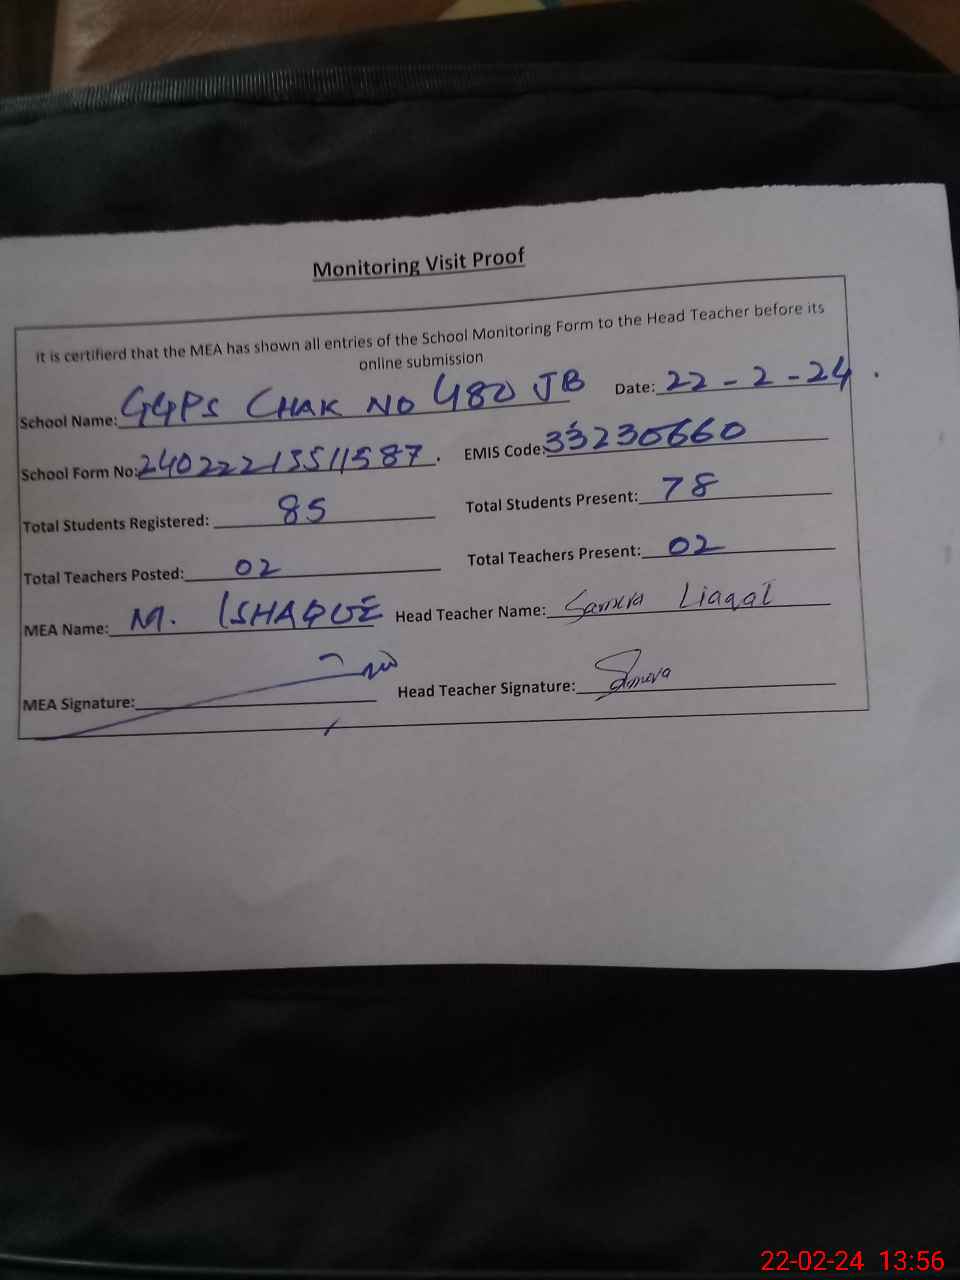 Monitoring Visit Proof
It is certifierd that the MEA has shown all entries of the School Monitoring Form to the Head Teacher before its
online submission
School Name: GGPS CHAK NO 480 JB Date: 22-2-24.
School Form No: 24022213511587. EMIS Code: 33230660
Total Students Registered: 85 Total Students Present: 78
Total Teachers Posted: 02 Total Teachers Present: 02
MEA Name: M. ISHAQUE Head Teacher Name: Samera Liaqat
MEA Signature: Head Teacher Signature: Samera
22-02-24 13:56